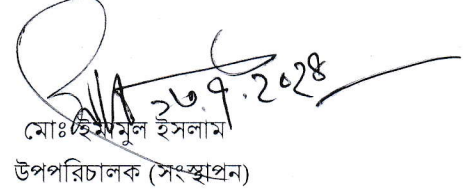 ১৬.৭.২০২৪
মোঃ ইমামুল ইসলাম
উপপরিচালক (সংস্থাপন)